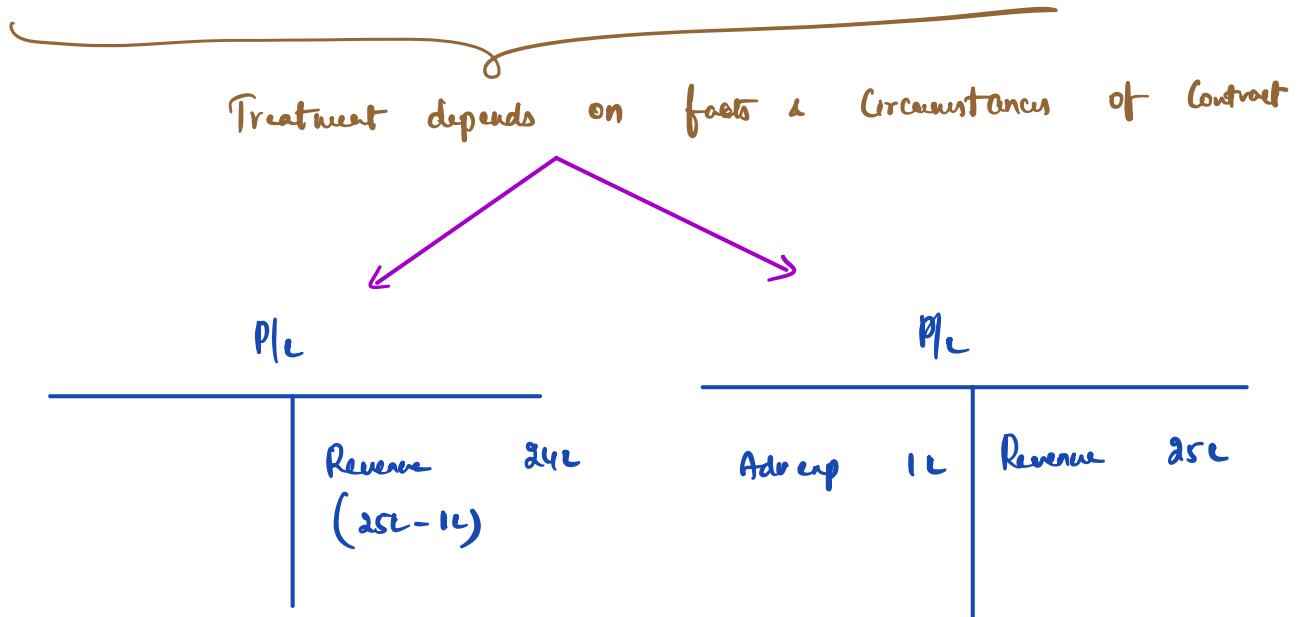 Treatment depends on facts & Circumstances of Contract
P/L
P/L
Revenue 24L
(25L - 1L)
Adv exp 1L
Revenue 25L